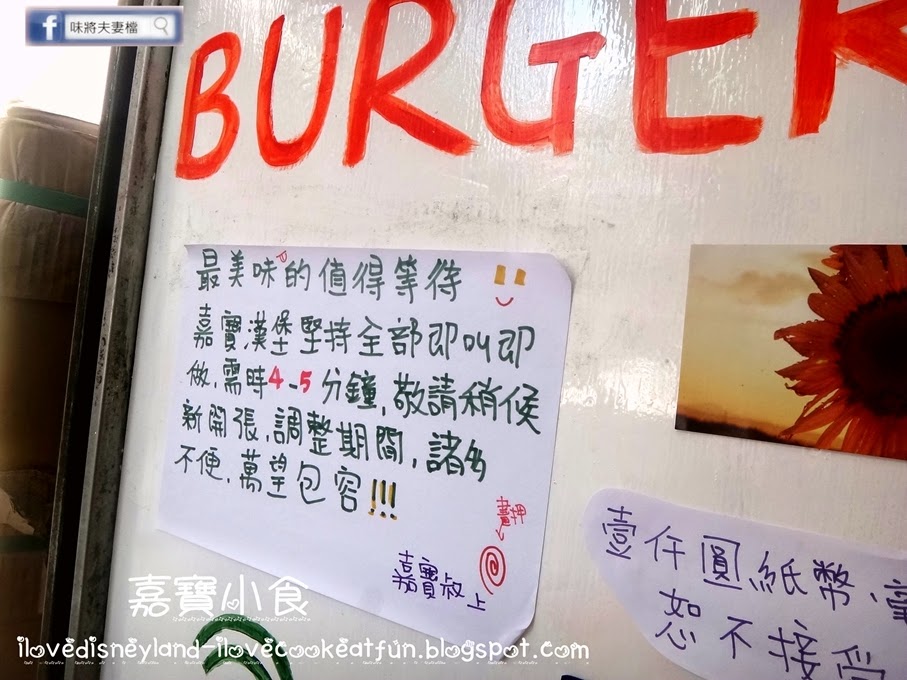 味將夫妻檔
BURGER
最美味的值得等待
嘉寶漢堡堅持全部即叫即
做,需時4-5分鐘,敬請稍候
新開張,調整期間,諸多
不便,萬望包容!!!
畫押
嘉寶叔上
壹仟圓紙幣、
恕不接受
嘉寶小食
ilovedisneyland-ilovecookeatfun.blogspot.com